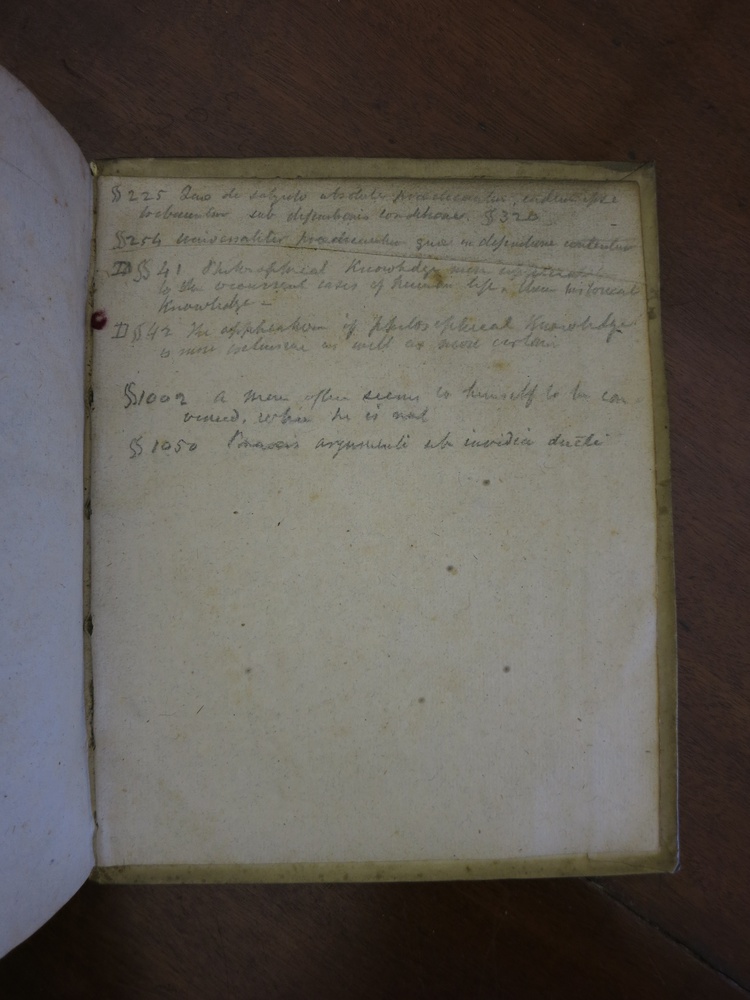 § 225 Quae de subjecto absolute praedicantur, eadem ipsi
tribuuntur sub definitionis conditione. § 320
§ 254 universaliter praedicantur quae in definitione continentur
D §§ 41 Philosophical Knowledge more
to the occurrent cases of human life, than historical
Knowledge =
D § 42 The application of philosophical Knowledge
is more as well as more certain
§ 1009 a man often seems to himself to be con
vinced, when he is not
§ 1050 argumenti ab invidia ducti